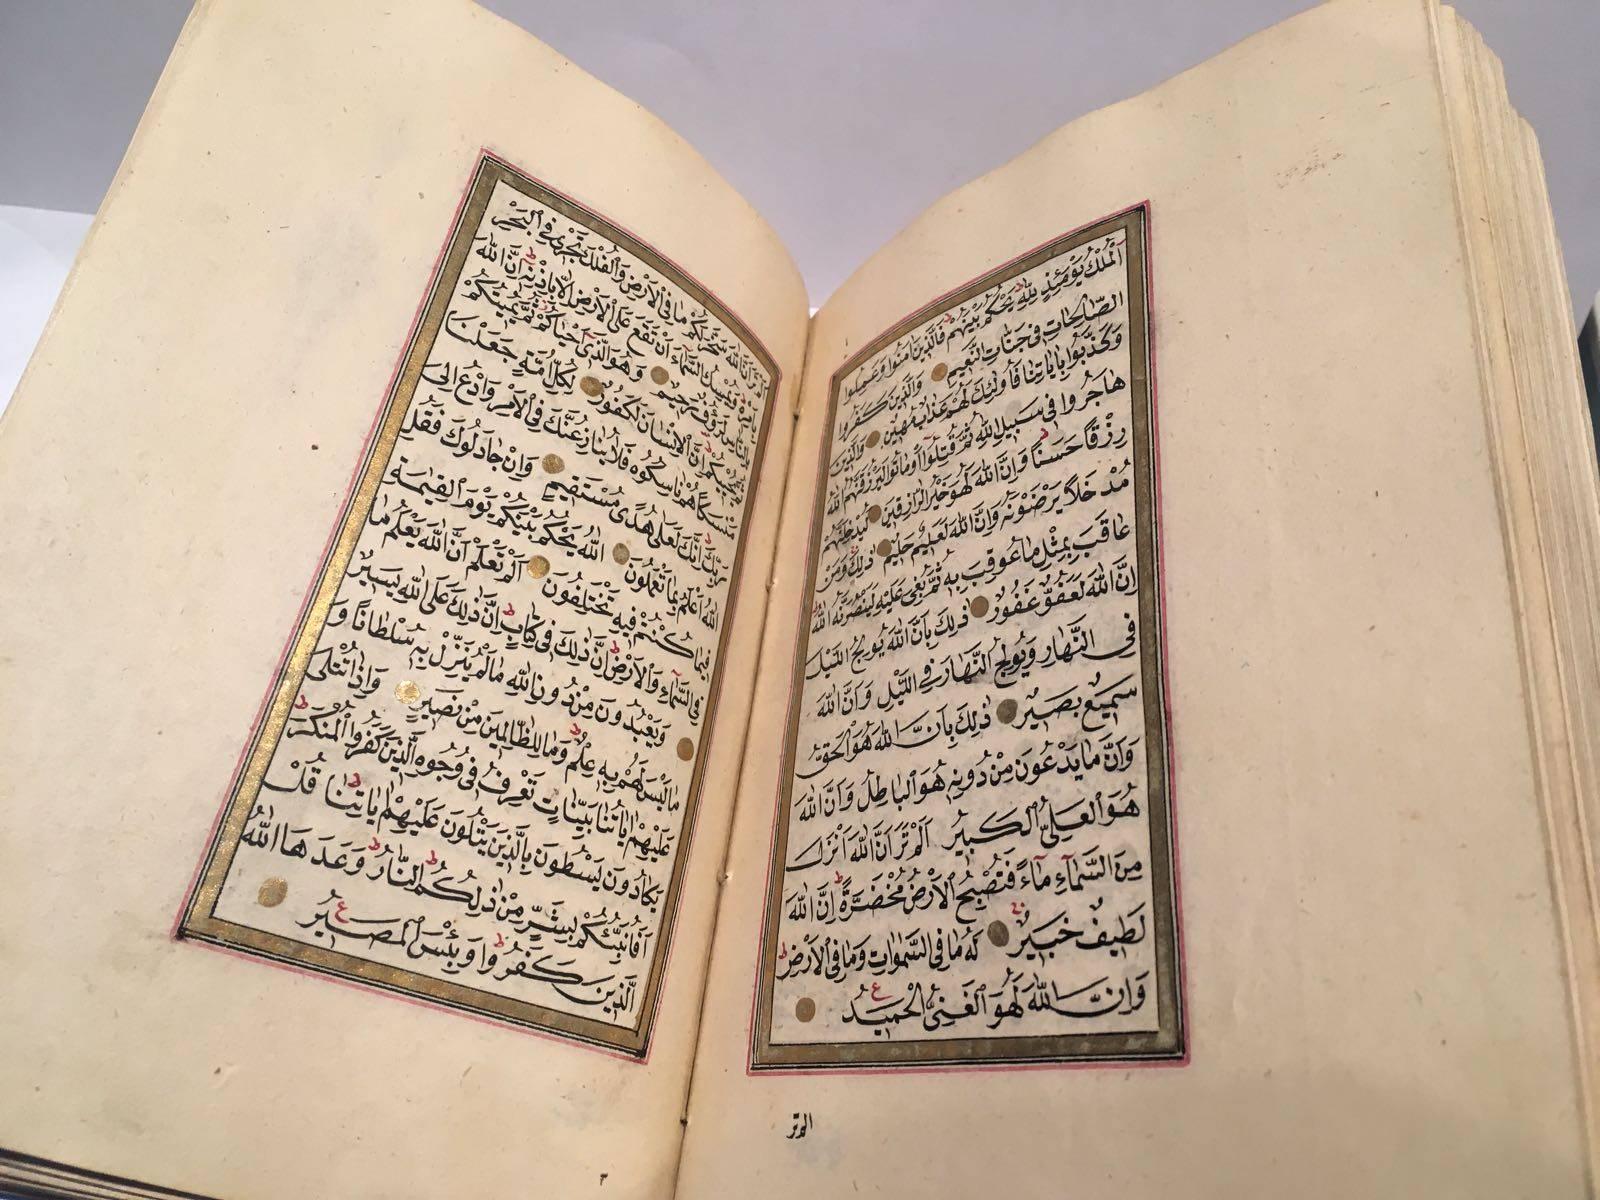 اَلْمُلْكُ يَوْمَئِذٍ لِلّٰهِ يَحْكُمُ بَيْنَهُمْ فَالَّذِينَ اٰمَنُوا وَعَمِلُوا
الصَّالِحَاتِ فِي جَنَّاتِ النَّعِيمِ وَالَّذِينَ كَفَرُوا
وَكَذَّبُوا بِاٰيَاتِنَا فَاُولٰئِكَ لَهُمْ عَذَابٌ مُهِينٌ وَالَّذِينَ
هَاجَرُوا فِي سَبِيلِ اللّٰهِ ثُمَّ قُتِلُوا اَوْ مَاتُوا لَيَرْزُقَنَّهُمُ اللّٰهُ
رِزْقًا حَسَنًا وَاِنَّ اللّٰهَ لَهُوَ خَيْرُ الرَّازِقِينَ لَيُدْخِلَنَّهُمْ
مُدْخَلًا يَرْضَوْنَهُ وَاِنَّ اللّٰهَ لَعَلِيمٌ حَلِيمٌ ذٰلِكَ وَمَنْ
عَاقَبَ بِمِثْلِ مَا عُوقِبَ بِهِ ثُمَّ بُغِيَ عَلَيْهِ لَيَنْصُرَنَّهُ اللّٰهُ
اِنَّ اللّٰهَ لَعَفُوٌّ غَفُورٌ ذٰلِكَ بِاَنَّ اللّٰهَ يُولِجُ اللَّيْلَ
فِي النَّهَارِ وَيُولِجُ النَّهَارَ فِي اللَّيْلِ وَاَنَّ اللّٰهَ
سَمِيعٌ بَصِيرٌ ذٰلِكَ بِاَنَّ اللّٰهَ هُوَ الْحَقُّ
وَاَنَّ مَا يَدْعُونَ مِنْ دُونِهِ هُوَ الْبَاطِلُ وَاَنَّ اللّٰهَ
هُوَ الْعَلِيُّ الْكَبِيرُ اَلَمْ تَرَ اَنَّ اللّٰهَ اَنْزَلَ
مِنَ السَّمَآءِ مَآءً فَتُصْبِحُ الْاَرْضُ مُخْضَرَّةً اِنَّ اللّٰهَ
لَطِيفٌ خَبِيرٌ لَهُ مَا فِي السَّمٰوَاتِ وَمَا فِي الْاَرْضِ
وَاِنَّ اللّٰهَ لَهُوَ الْغَنِيُّ الْحَمِيدُ
الم تر
اَلَمْ تَرَ اَنَّ اللّٰهَ سَخَّرَ لَكُمْ مَا فِي الْاَرْضِ وَالْفُلْكَ تَجْرِي فِي الْبَحْرِ
بِاَمْرِهِ وَيُمْسِكُ السَّمَآءَ اَنْ تَقَعَ عَلَى الْاَرْضِ اِلَّا بِاِذْنِهِ اِنَّ اللّٰهَ
بِالنَّاسِ لَرَؤُفٌ رَحِيمٌ وَهُوَ الَّذِي اَحْيَاكُمْ ثُمَّ يُمِيتُكُمْ
ثُمَّ يُحْيِيكُمْ اِنَّ الْاِنْسَانَ لَكَفُورٌ لِكُلِّ اُمَّةٍ جَعَلْنَا
مَنْسَكًا هُمْ نَاسِكُوهُ فَلَا يُنَازِعُنَّكَ فِي الْاَمْرِ وَادْعُ اِلٰى
رَبِّكَ اِنَّكَ لَعَلٰى هُدًى مُسْتَقِيمٍ وَاِنْ جَادَلُوكَ فَقُلِ
اللّٰهُ اَعْلَمُ بِمَا تَعْمَلُونَ اَللّٰهُ يَحْكُمُ بَيْنَكُمْ يَوْمَ الْقِيٰمَةِ
فِيمَا كُنْتُمْ فِيهِ تَخْتَلِفُونَ اَلَمْ تَعْلَمْ اَنَّ اللّٰهَ يَعْلَمُ مَا
فِي السَّمَآءِ وَالْاَرْضِ اِنَّ ذٰلِكَ فِي كِتَابٍ اِنَّ ذٰلِكَ عَلَى اللّٰهِ يَسِيرٌ
وَيَعْبُدُونَ مِنْ دُونِ اللّٰهِ مَا لَمْ يُنَزِّلْ بِهِ سُلْطَانًا وَ
مَا لَيْسَ لَهُمْ بِهِ عِلْمٌ وَمَا لِلظَّالِمِينَ مِنْ نَصِيرٍ وَاِذَا تُتْلٰى
عَلَيْهِمْ اٰيَاتُنَا بَيِّنَاتٍ تَعْرِفُ فِي وُجُوهِ الَّذِينَ كَفَرُوا الْمُنْكَرَ
يَكَادُونَ يَسْطُونَ بِالَّذِينَ يَتْلُونَ عَلَيْهِمْ اٰيَاتِنَا قُلْ
اَفَاُنَبِّئُكُمْ بِشَرٍّ مِنْ ذٰلِكُمُ النَّارُ وَعَدَهَا اللّٰهُ
الَّذِينَ كَفَرُوا وَبِئْسَ الْمَصِيرُ
٣